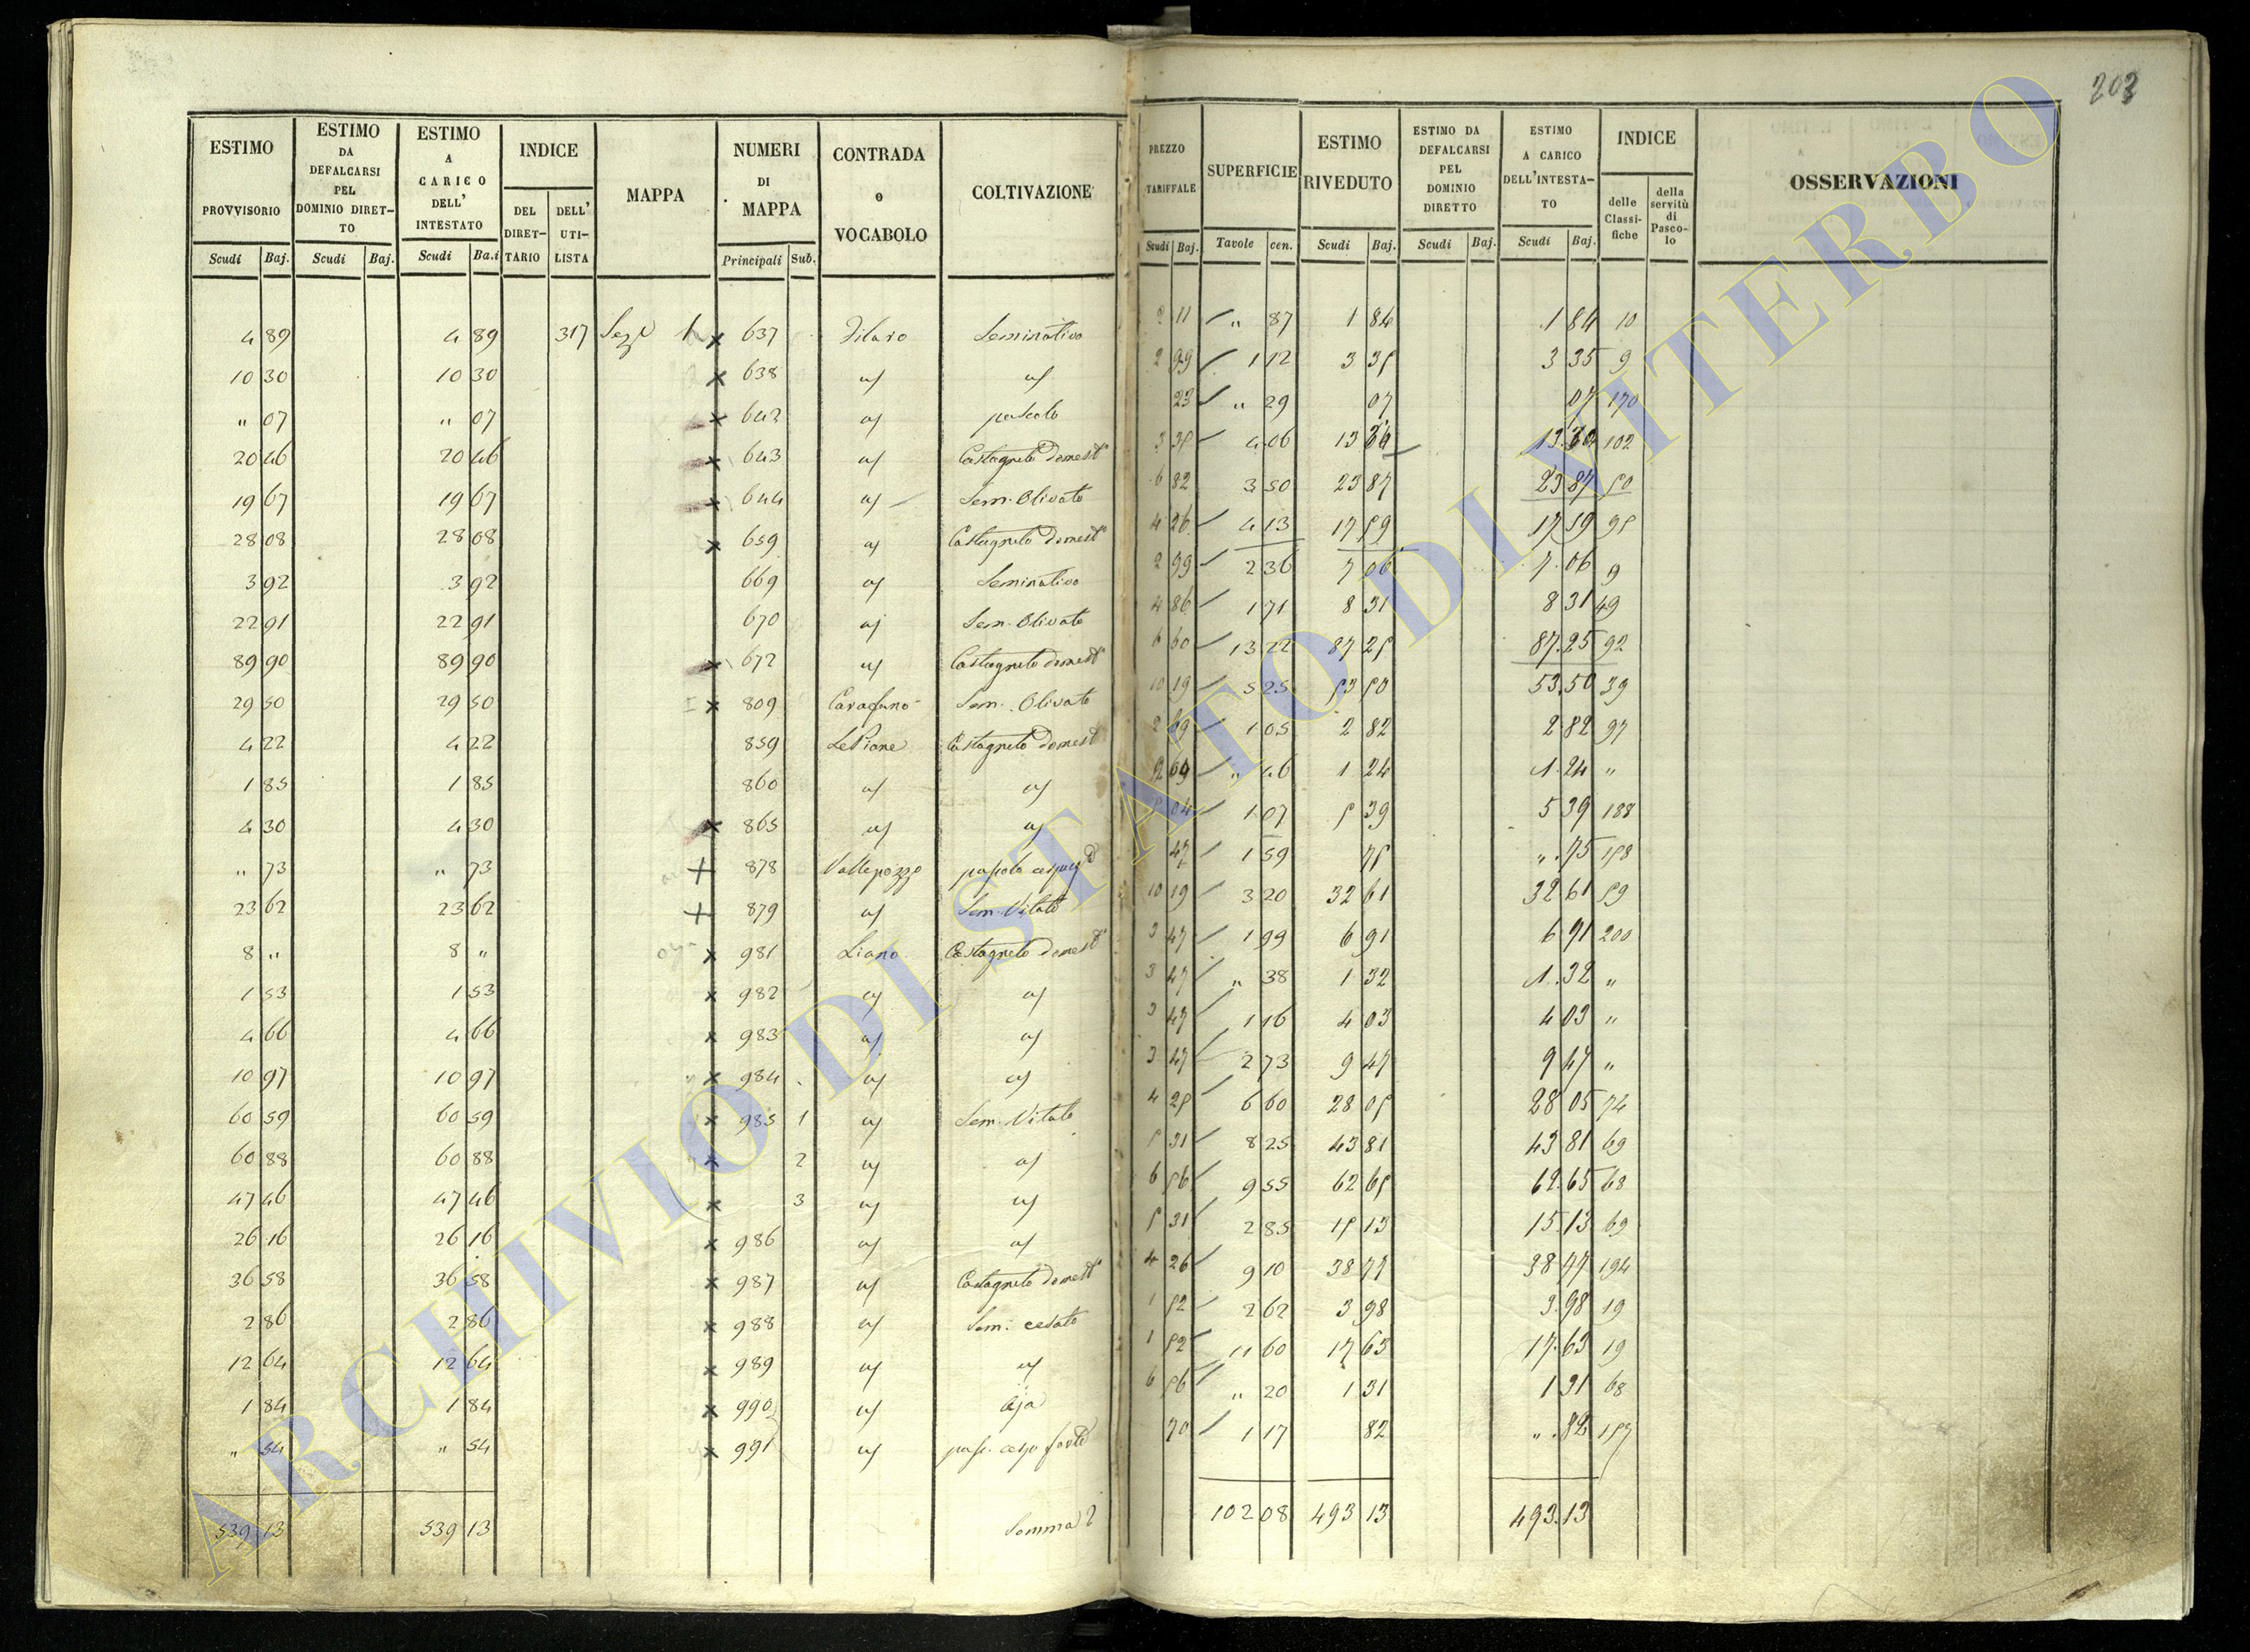 203
ESTIMO PROVVISORIO Scudi Baj. | ESTIMO DA DEFALCARSI PEL DOMINIO DIRETTO Scudi Baj. | ESTIMO A CARICO DELL' INTESTATO Scudi Ba.i | INDICE DEL DIRETTARIO DELL' UTILISTA | MAPPA | NUMERI DI MAPPA Principali Sub. | CONTRADA o VOCABOLO | COLTIVAZIONE
PREZZO TARIFFALE Scudi Baj. | SUPERFICIE Tavole cen. | ESTIMO RIVEDUTO Scudi Baj. | ESTIMO DA DEFALCARSI PEL DOMINIO DIRETTO Scudi Baj. | ESTIMO A CARICO DELL'INTESTATO Scudi Baj. | INDICE delle Classifiche della servitù di Pascolo | OSSERVAZIONI
4 89 | 4 89 | 317 | 637 | Seminativo
10 30 | 10 30 | 638
" 07 | " 07 | 642 | pascolo
20 46 | 20 46 | 643 | Castagneto domest°
19 67 | 19 67 | 644 | Sem. Olivato
28 08 | 28 08 | 659 | Castagneto domest°
3 92 | 3 92 | 669 | Seminativo
22 91 | 22 91 | 670 | Sem. Olivato
89 90 | 89 90 | 672 | Castagneto domest°
29 50 | 29 50 | 809 | Sem. Olivato
4 22 | 4 22 | 859 | Le Piane | Castagneto domest°
1 85 | 1 85 | 860
4 30 | 4 30 | 865
" 73 | " 73 | 878 | Vallepozzo
23 62 | 23 62 | 879 | Sem. Vitato
8 " | 8 " | 981 | Liano | Castagneto domest°
1 53 | 1 53 | 982
4 66 | 4 66 | 983
10 97 | 10 97 | 984
60 59 | 60 59 | 985 1 | Sem. Vitato
60 88 | 60 88 | 2
47 46 | 47 46 | 3
26 16 | 26 16 | 986
36 58 | 36 58 | 987 | Castagneto domest°
2 86 | 2 86 | 988 | Sem. cesato
12 64 | 12 64 | 989
1 84 | 1 84 | 990 | Aja
" 54 | " 54 | 991
539 13 | 539 13 | Somma
2 11 | " 87 | 1 84 | 1 84 | 10
2 99 | 1 12 | 3 35 | 3 35 | 9
23 | " 29 | 07 | 07 | 170
3 35 | 4 06 | 13 60 | 13 60 | 102
6 82 | 3 50 | 23 87 | 23 87 | 50
4 26 | 4 13 | 17 59 | 17 59 | 95
2 99 | 2 36 | 7 06 | 7 06 | 9
4 86 | 1 71 | 8 31 | 8 31 | 49
6 60 | 13 22 | 87 25 | 87.25 | 92
10 19 | 5 25 | 53 50 | 53.50 | 39
2 69 | 1 05 | 2 82 | 2 82 | 97
2 69 | " 46 | 1 24 | 1.24 | "
5 04 | 1 07 | 5 39 | 5 39 | 188
47 | 1 59 | 75 | " .75 | 158
10 19 | 3 20 | 32 61 | 32 61 | 59
3 47 | 1 99 | 6 91 | 6 91 | 200
3 47 | " 38 | 1 32 | 1.32 | "
3 47 | 1 16 | 4 03 | 4 03 | "
3 47 | 2 73 | 9 47 | 9 47 | "
4 25 | 6 60 | 28 05 | 28 05 | 74
5 31 | 8 25 | 43 81 | 43 81 | 69
6 56 | 9 55 | 62 65 | 62.65 | 68
5 31 | 2 85 | 15 13 | 15.13 | 69
4 26 | 9 10 | 38 77 | 38 77 | 194
1 52 | 2 62 | 3 98 | 3.98 | 19
1 52 | 11 60 | 17 63 | 17.63 | 19
6 56 | " 20 | 1 31 | 1 31 | 68
70 | 1 17 | 82 | " .82 | 157
102 08 | 493 13 | 493.13
ARCHIVIO DI STATO DI VITERBO